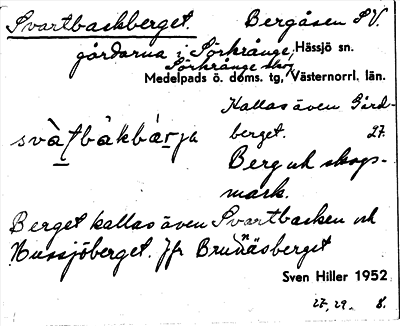 Svartbackberget. Bergåsen SV.
gårdarna i Sörkrånge, Hässjö sn.
Sörkrånge skog,
Medelpads ö. doms. tg, Västernorrl. län.
Kallas även Gård-
berget. 27.
Berg och skogs-
mark.
Berget kallas även Svartbacken och
berget. Jfr Brunnäsberget
Sven Hiller 1952
27, 29. 8.